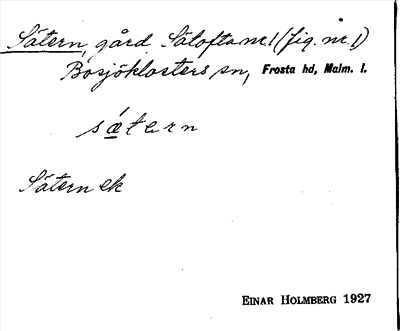 Sätern, gård, Sätofta nr. 1 (fig. nr. 1)
Bosjöklosters sn, Frosta hd, Malm. l.
sǽtern
Sätern ek
EINAR HOLMBERG 1927